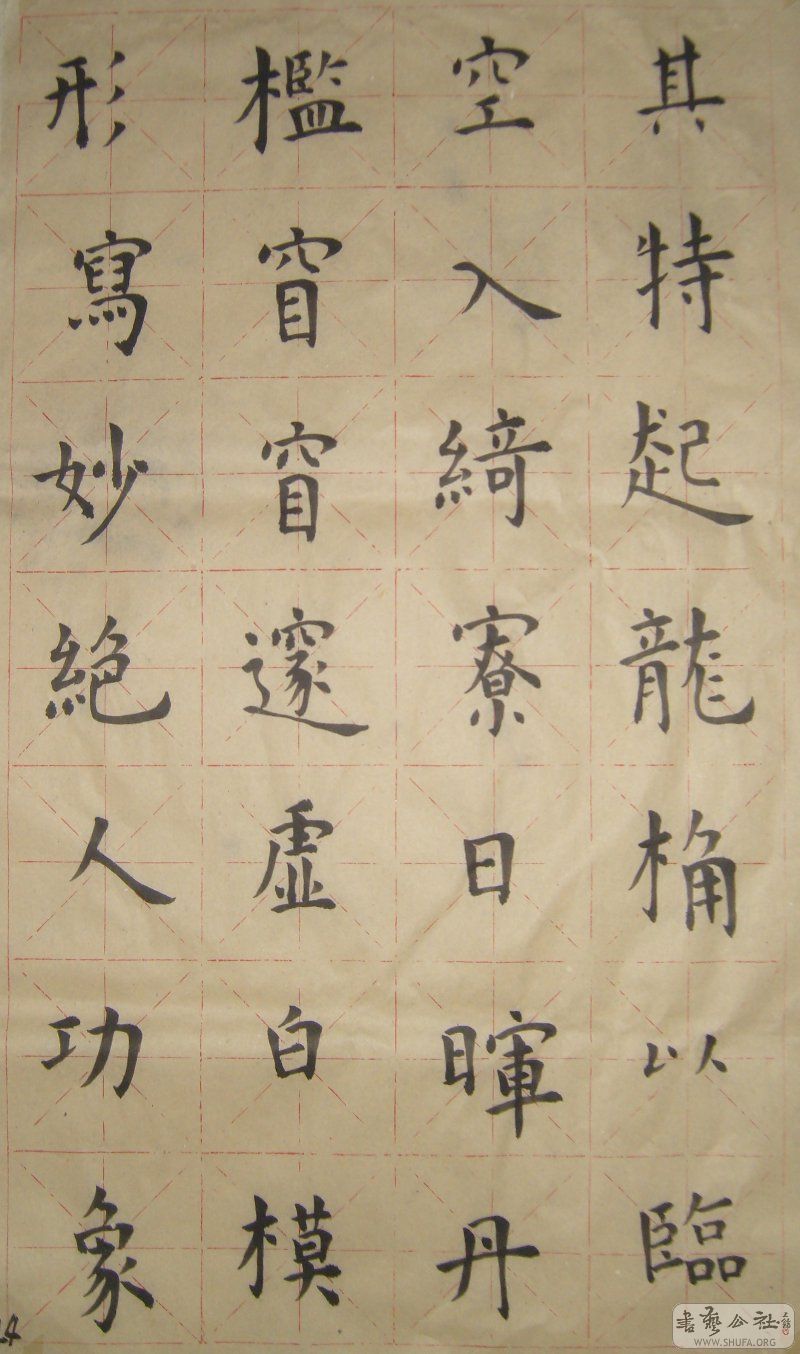 其特起龍桷以臨
空入綺寮日暉丹
檻窅窅邃虛白模
形寫妙絶人功象
書藝公社
WWW.SHUFA.ORG